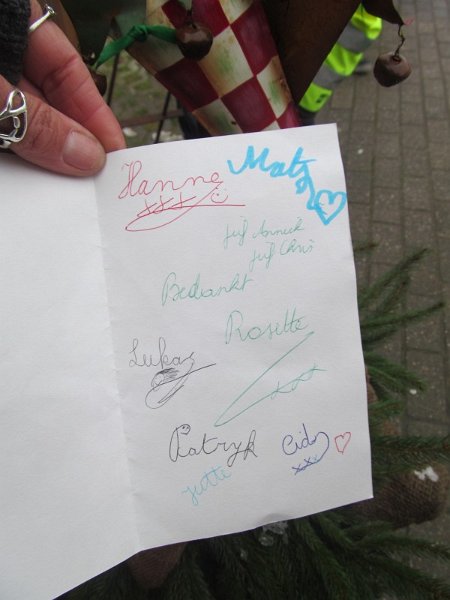 Hanne
xxx
Mats
juf Annick
juf Chris
Bedankt
Rositte
xxx
Lukas
Patryk
xxx
Jutte